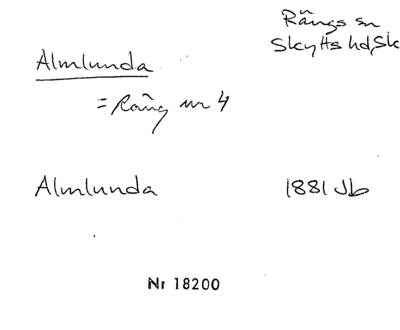 Rångs sn
Skytts hd, Sk
Almlunda
= Rång nr 4
Almlunda 1881 Jb
Nr 18200